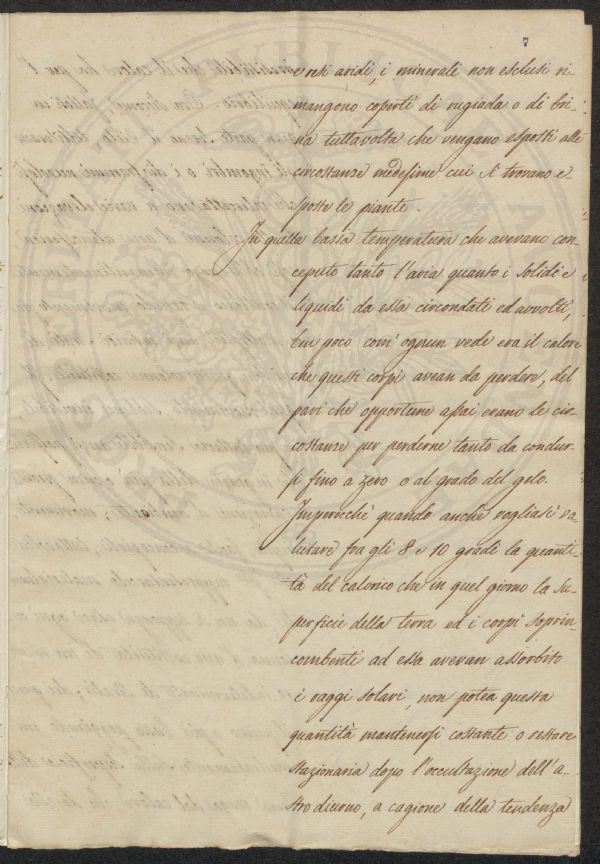 7
e resi aridi, i minerali non esclusi ri-
mangono coperti di rugiada o di bri-
na tuttavolta che vengano esposti alle
circostanze medesime cui si trovano e-
sposte le piante.
In quella bassa temperatura che avevano con
cepute tanto l'aria quanto i solidi e
liquidi da essa circondati ed avvolti,
ben poco com' ognun vede era il calore
che questi corpi avean da perdere, del
pari che opportune assai erano le cir-
costanze per perderne tanto da condur-
si fino a zero o al grado del gelo.
Imperocchè quando anche vogliasi va-
lutare fra gli 8 e 10 gradi la quanti-
tà del calorico che in quel giorno la su-
perficie della terra ed i corpi soprin-
combenti ad essa avevan assorbito
i raggi solari, non potea questa
quantità mantenersi costante o restare
stazionaria dopo l'occultazione dell'a-
stro diurno, a cagione della tendenza